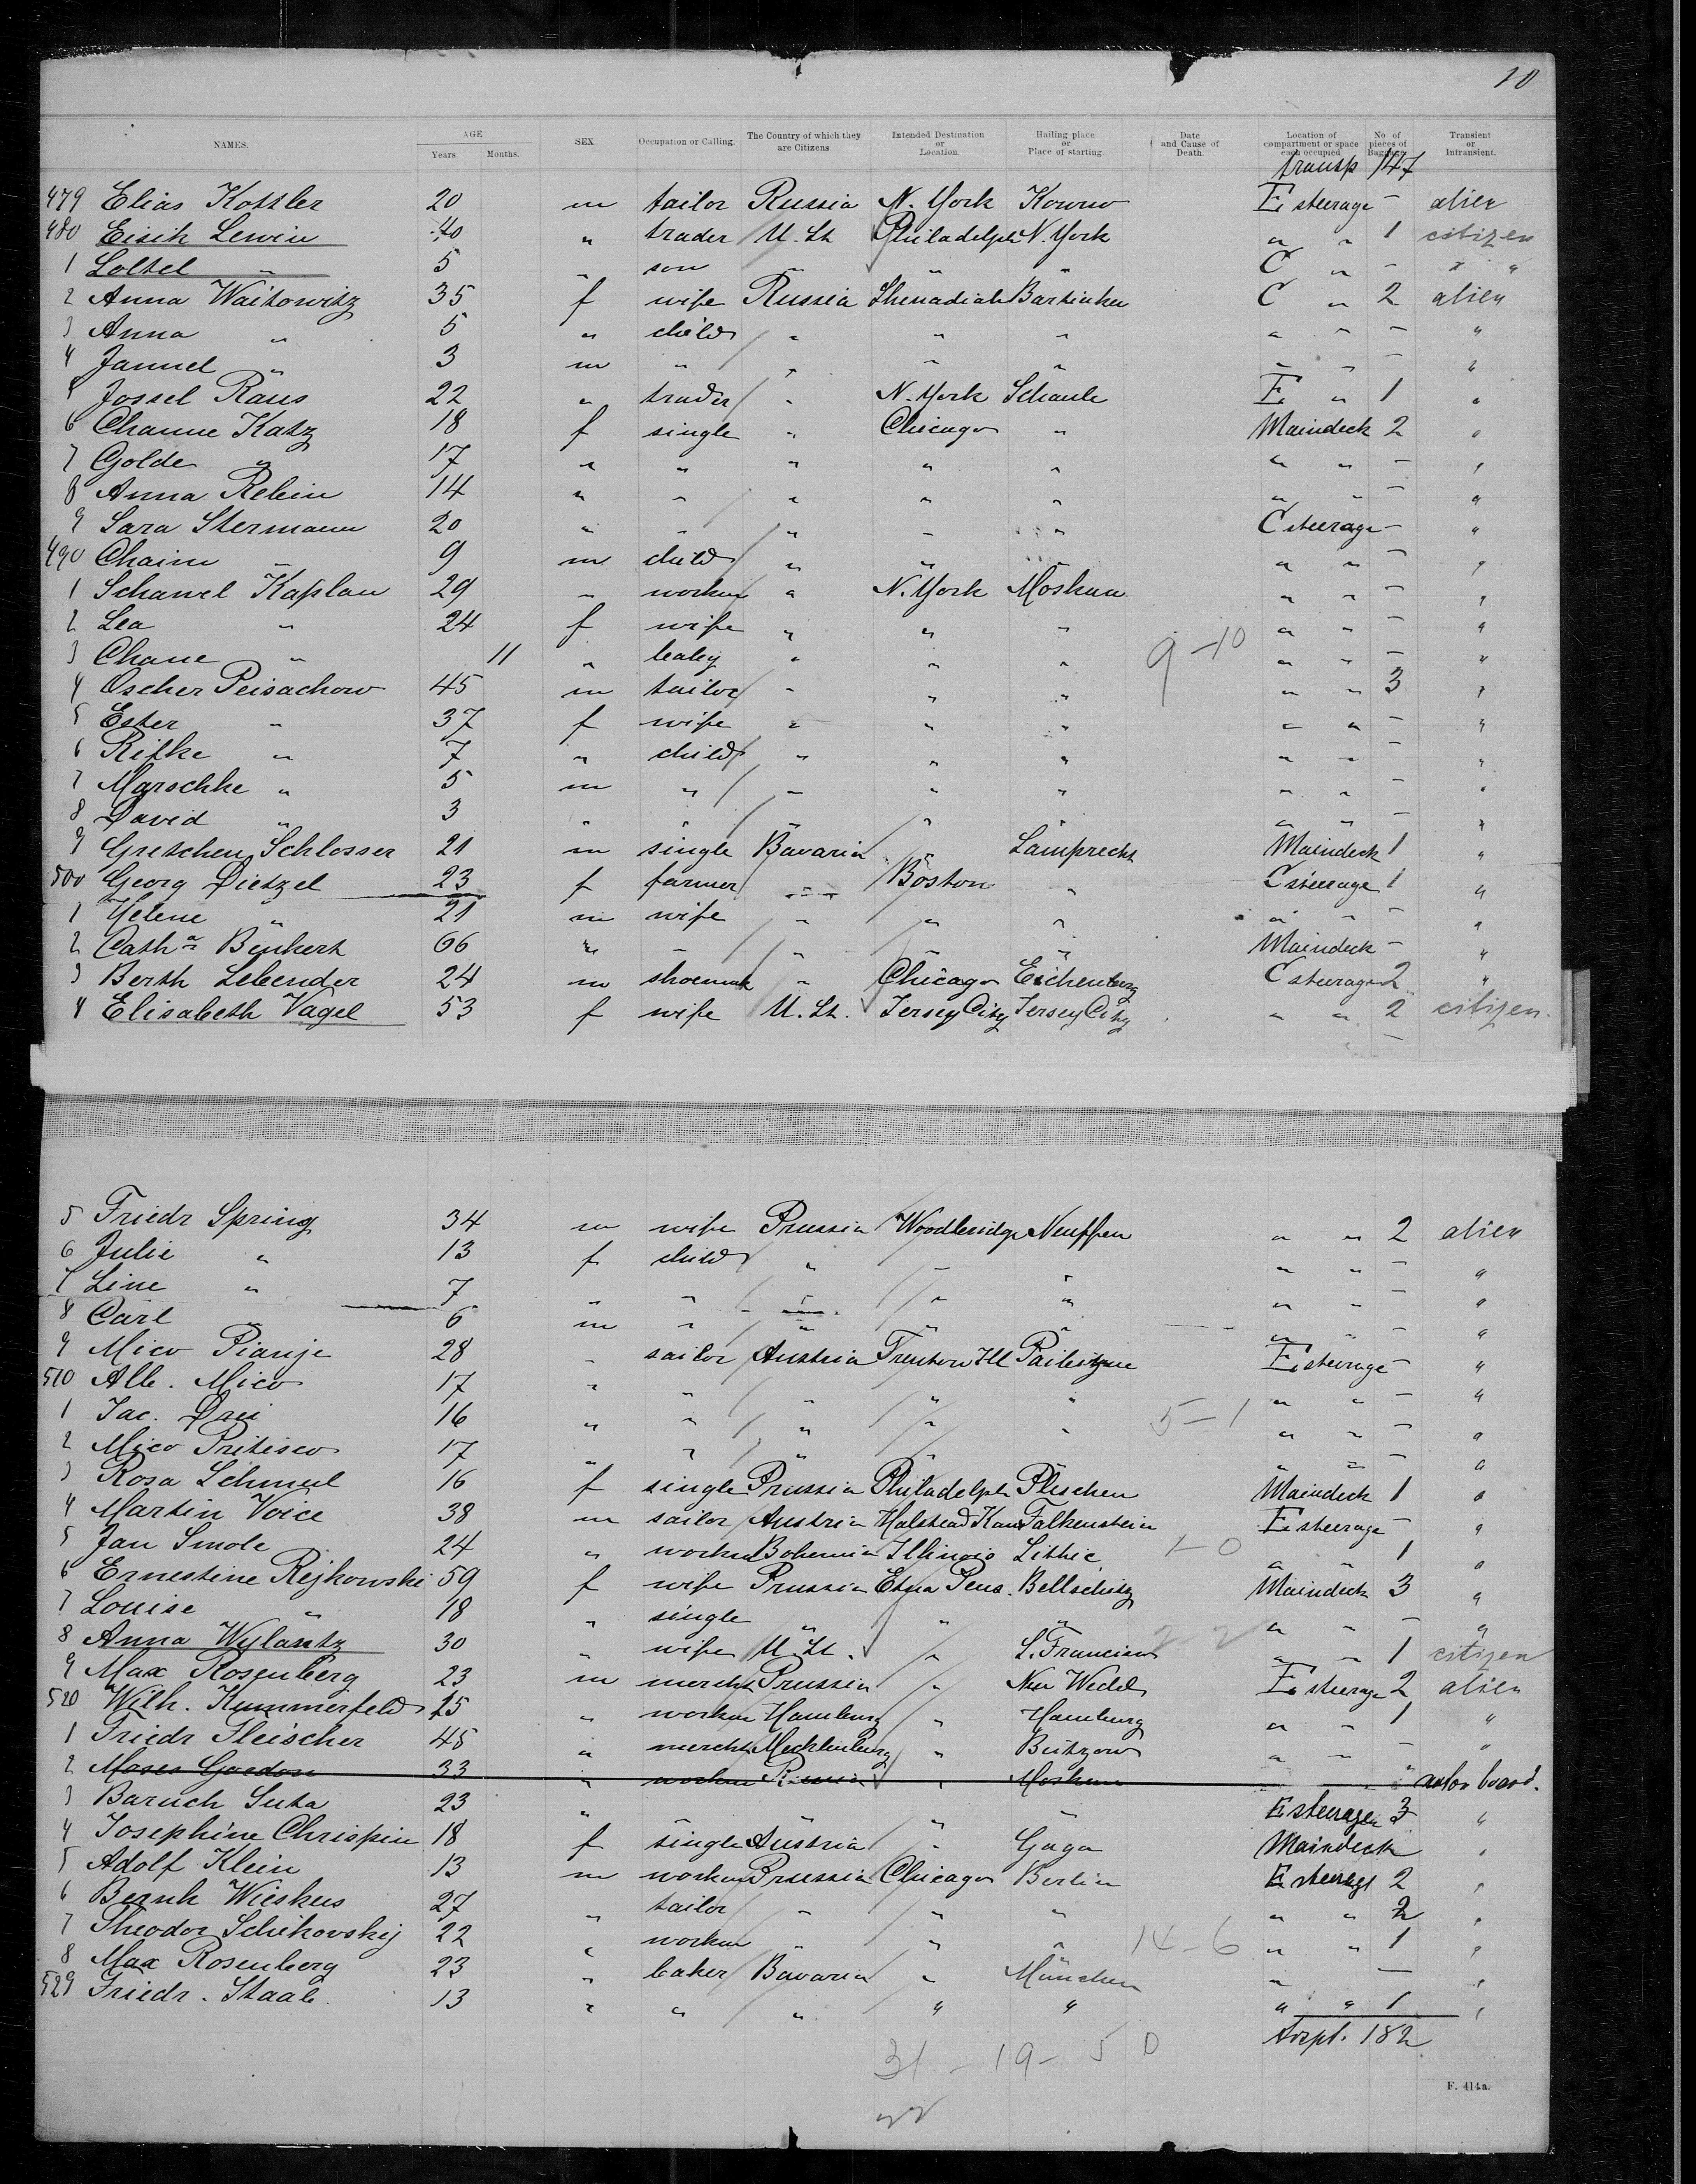 10
NAMES. AGE Years. Months. SEX Occupation or Calling. The Country of which they are Citizens Intended Destination or Location. Hailing place or Place of starting. Date and Cause of Death. Location of compartment or space each occupied No. of pieces of Baggage Transient or Intransient.
transp 147
479 Elias Kottler 20 m tailor Russia N. York Kowno E steerage - alien
480 Eisik Lewin 40 " trader U. St Philadelph N. York " " 1 citizen
1 Loltel " 5 " son " " C " - " "
2 Anna Waitowitz 35 f wife Russia Shenadiah C " 2 alien
3 Anna " 5 " child " " " " " - "
4 Jannel " 3 m " " " " " " - "
5 Jossel Raus 22 " trader " N. York Schaule E " 1 "
6 Channe Katz 18 f single " Chicago " Maindeck 2 "
7 Golde " 17 " " " " " " " - "
8 Anna Rebein 14 " " " " " " " - "
9 Sara Stermann 20 " " " " " C steerage - "
490 Chaim " 9 m child " " " " " - "
1 Schawel Kaplan 29 " workm " N. York Moskau " " - "
2 Lea " 24 f wife " " " " " - "
3 Chane " 11 " baby " " " 9-10 " " - "
4 Oscher Peisachow 45 m tailor " " " " " 3 "
5 Ester " 37 f wife " " " " " - "
6 Rifke " 7 " child " " " " " - "
7 Marschke " 5 m " " " " " " - "
8 David " 3 " " " " " " " - "
9 Gretchen Schlosser 21 m single Bavaria " Lamprecht Maindeck 1 "
500 Georg Dietzel 23 f farmer " Boston " C steerage 1 "
1 Helene " 21 m wife " " " " " - "
2 Catha Benkert 66 " " " " " Maindeck - "
3 Berth Lebender 24 m shoemak " Chicago Eichenberg C steerage 2 "
4 Elisabeth Vagel 53 f wife U. St. Jersey City Jersey City " " 2 citizen
5 Friedr Spring 34 m wife Prussia Woodbridge Neuffen " " 2 alien
6 Julie " 13 f child " " " " " - "
7 Line " 7 " " " " " " " - "
8 Carl 6 m " " " " " " - "
9 Mico Pianje 28 " sailor Austria Trenton Ill E steerage - "
510 Alb. Mico 17 " " " " " " " - "
1 Jac. Drei 16 " " " " " 5-1 " " - "
2 Mico Pritisco 17 " " " " " " " - "
3 Rosa Schmul 16 f single Prussia Philadelph Pleschen Maindeck 1 "
4 Martin Voice 38 m sailor Austria Halstead Kans Falkenstein E steerage - "
5 Jan Smole 24 " workm Bohemia Illinois Littic 1-0 " " 1 "
6 Ernestine Rejkowski 59 f wife Prussia Etna Pens. Bellschitz Maindeck 3 "
7 Louise " 18 " single " " " " " - "
8 Anna Wylantz 30 " wife U. St. " S. Francisco 2-2 " " 1 citizen
9 Max Rosenberg 23 m mercht Prussia " Neu Wedel E steerage 2 alien
520 Wilh. Kummerfeld 25 " workm Hamburg " Hamburg " " 1 "
1 Friedr Fleischer 45 " mercht Mecklenburg " Bützow " " - "
2 Moses Gordon 33 " workm Russia " Moskau " not on board.
3 Baruch Suta 23 " " " " " E steerage 3 "
4 Josephine Chrispin 18 f single Austria " Gaga Maindeck "
5 Adolf Klein 13 m workm Prussia Chicago Berlin E steerage 2 "
6 Bernh Wieskus 27 " tailor " " " " " 2 "
7 Theodor Schikovskij 22 " workm " " " 14-6 " " 1 "
8 Max Rosenberg 23 " baker Bavaria " München " - "
529 Friedr. Staab 13 " " " " " " " 1 "
trspt. 182
31 - 19 - 50
F. 414a.